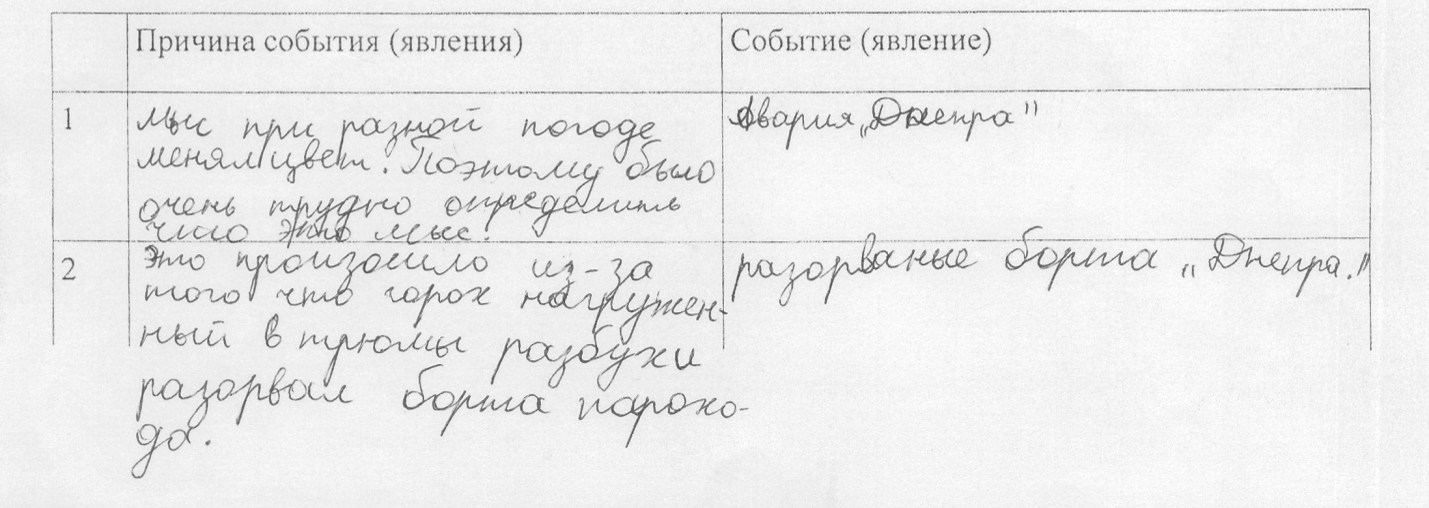 Причина события (явления)
Событие (явление)
1
Мыс при разной погоде
менял цвет. Поэтому было
очень трудно определить
что это мыс.
Авария „Днепра"
2
Это произошло из-за
того что горох нагружен-
ный в трюмы разбух и
разорвал борта парохо-
да.
разорваные борта „Днепра."